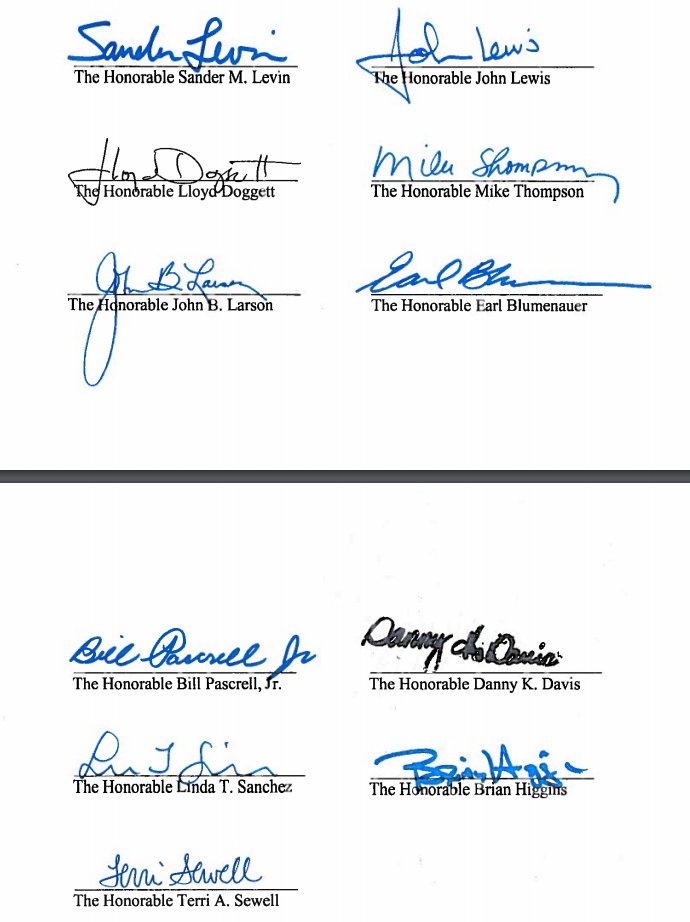 Sander Levin John Lewis
The Honorable Sander M. Levin The Honorable John Lewis
Lloyd Doggett Mike Thompson
The Honorable Lloyd Doggett The Honorable Mike Thompson
John B. Larson Earl Blu
The Honorable John B. Larson The Honorable Earl Blumenauer
Bill Pascrell Jr Danny K. Davis
The Honorable Bill Pascrell, Jr. The Honorable Danny K. Davis
Brian Higgins
The Honorable Linda T. Sanchez The Honorable Brian Higgins
Terri Sewell
The Honorable Terri A. Sewell